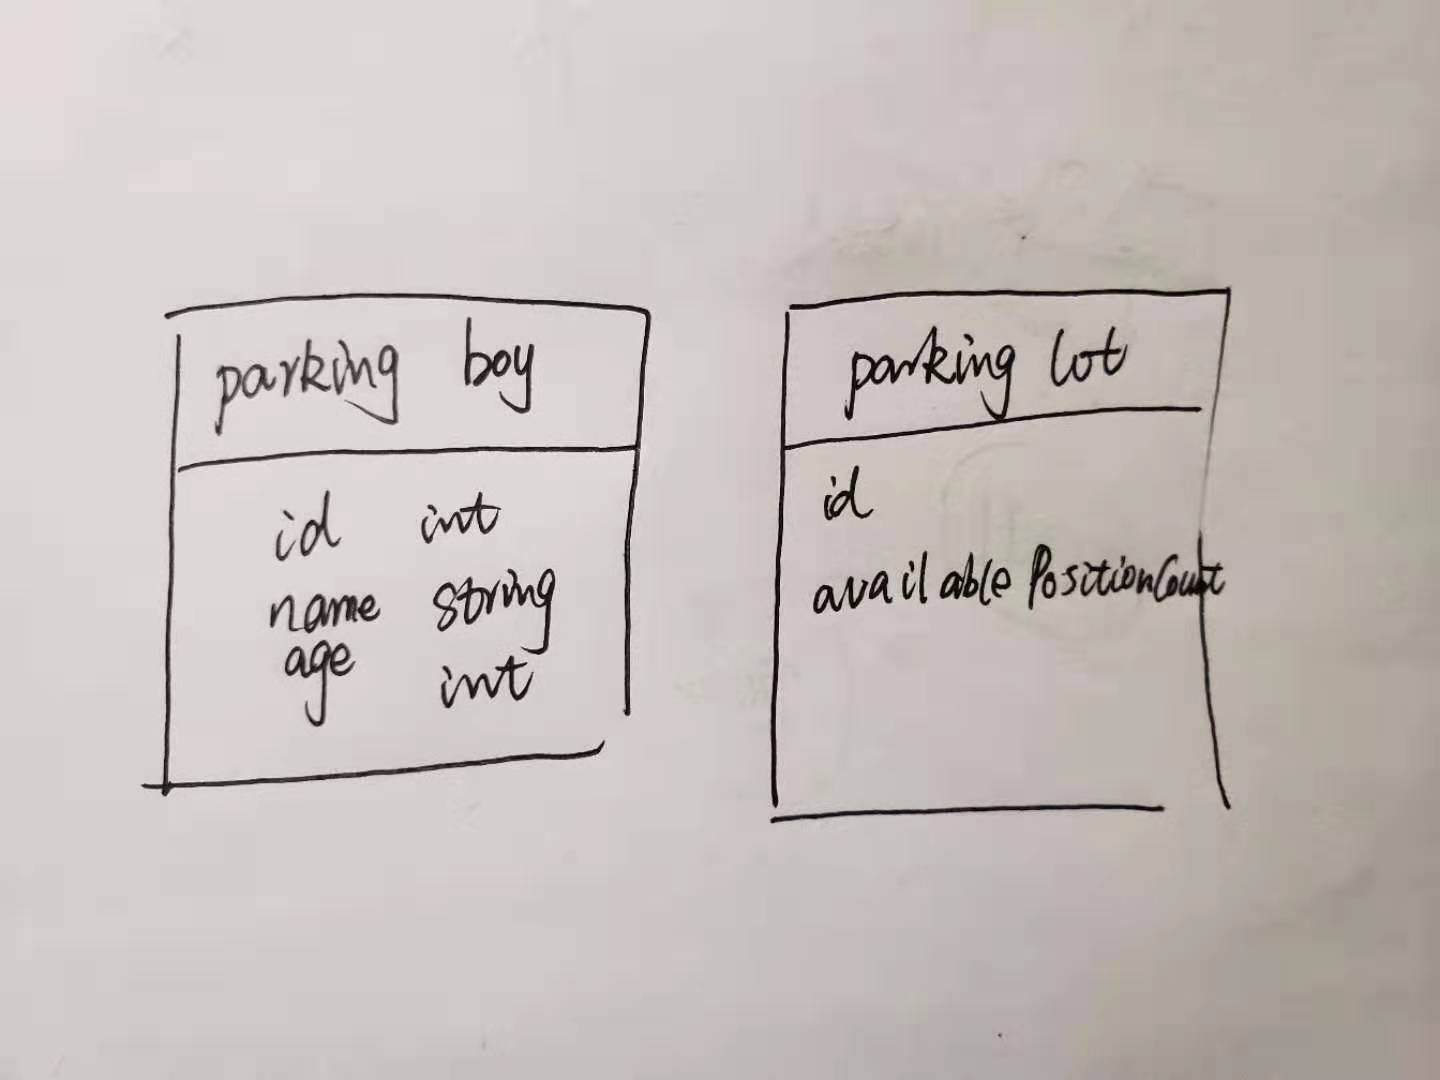 parking boy
id int
name string
age int
parking lot
id
availablePositionCount